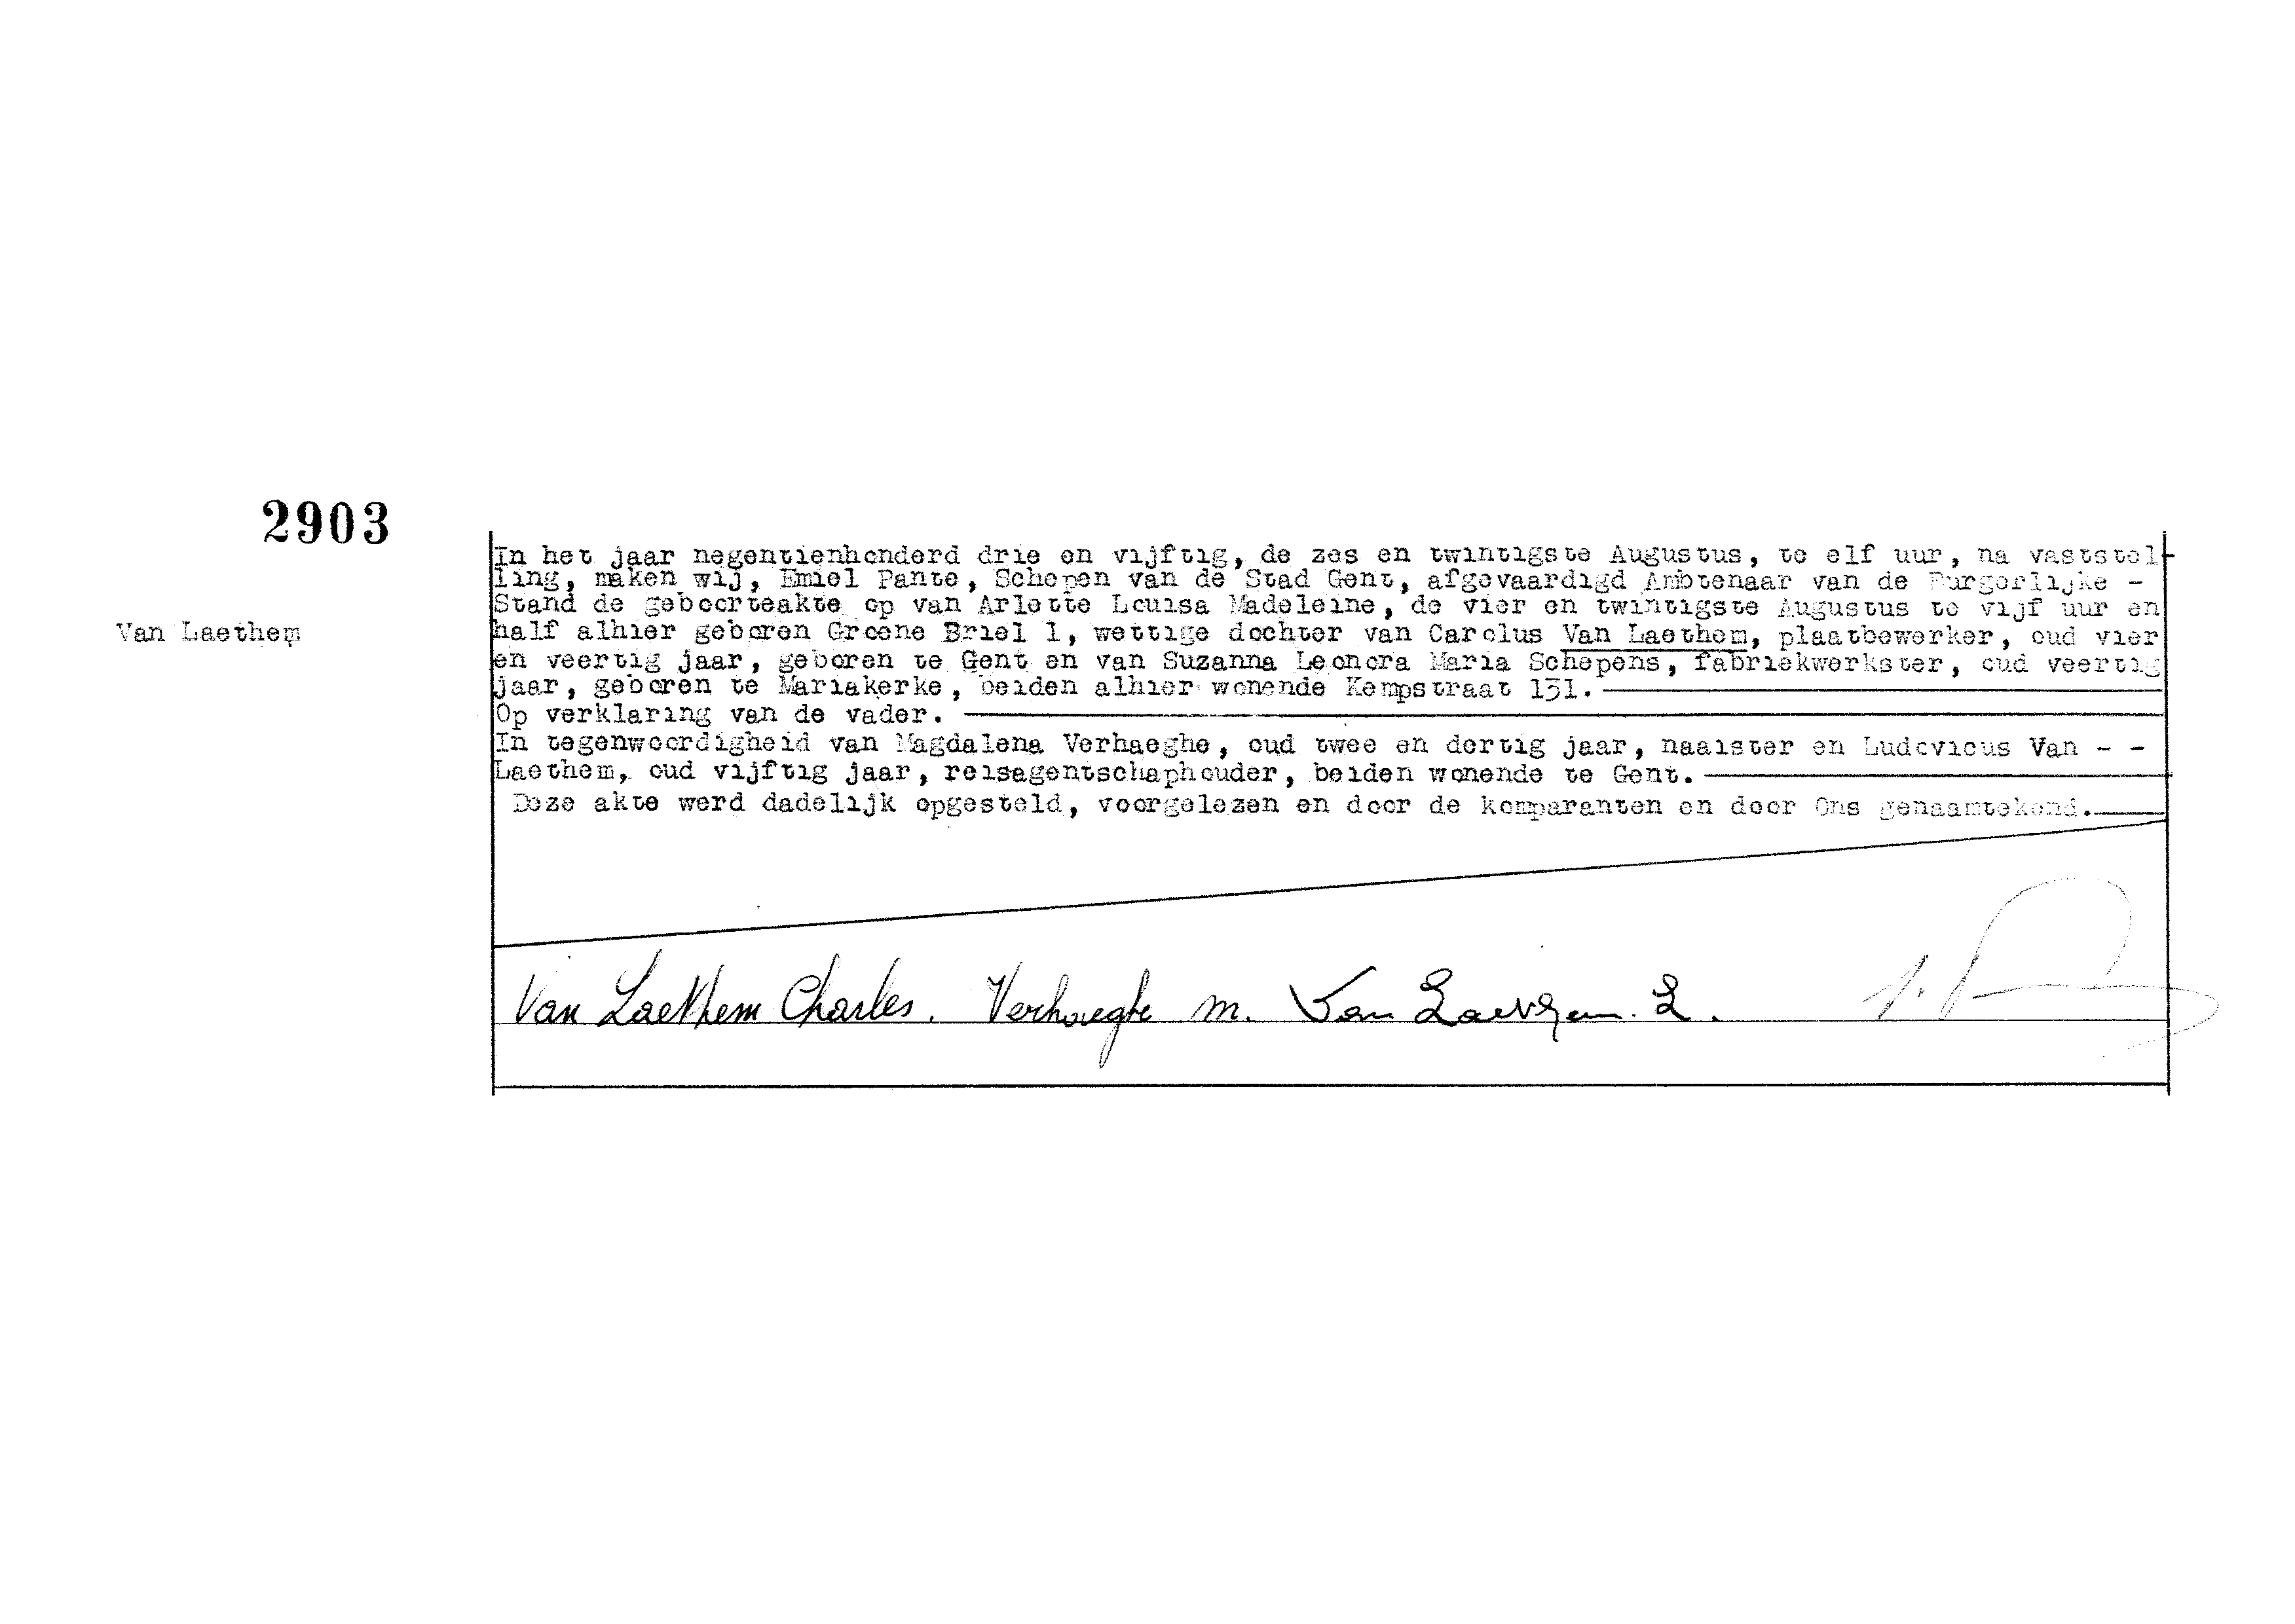 2903
In het jaar negentienhonderd drie en vijftig, de zes en twintigste Augustus, te elf uur, na vaststel-
ling, maken wij, Emiel Pante, Schepen van de Stad Gent, afgevaardigd Ambtenaar van de Burgerlijke -
Stand de geboorteakte op van Arlette Louisa Madeleine, de vier en twintigste Augustus te vijf uur en
Van Laethem
half alhier geboren Groene Briel 1, wettige dochter van Carolus Van Laethem, plaatbewerker, oud vier
en veertig jaar, geboren te Gent en van Suzanna Leonora Maria Schepens, fabriekwerkster, oud veertig
jaar, geboren te Mariakerke, beiden alhier wonende Kempstraat 131.
Op verklaring van de vader.
In tegenwoordigheid van Magdalena Verhaeghe, oud twee en dertig jaar, naaister en Ludovicus Van - -
Laethem, oud vijftig jaar, reisagentschaphouder, beiden wonende te Gent.
Deze akte werd dadelijk opgesteld, voorgelezen en door de komparanten en door Ons genaamtekend.
Van Laethem Charles. Verhaeghe m. Van Laethem. L.